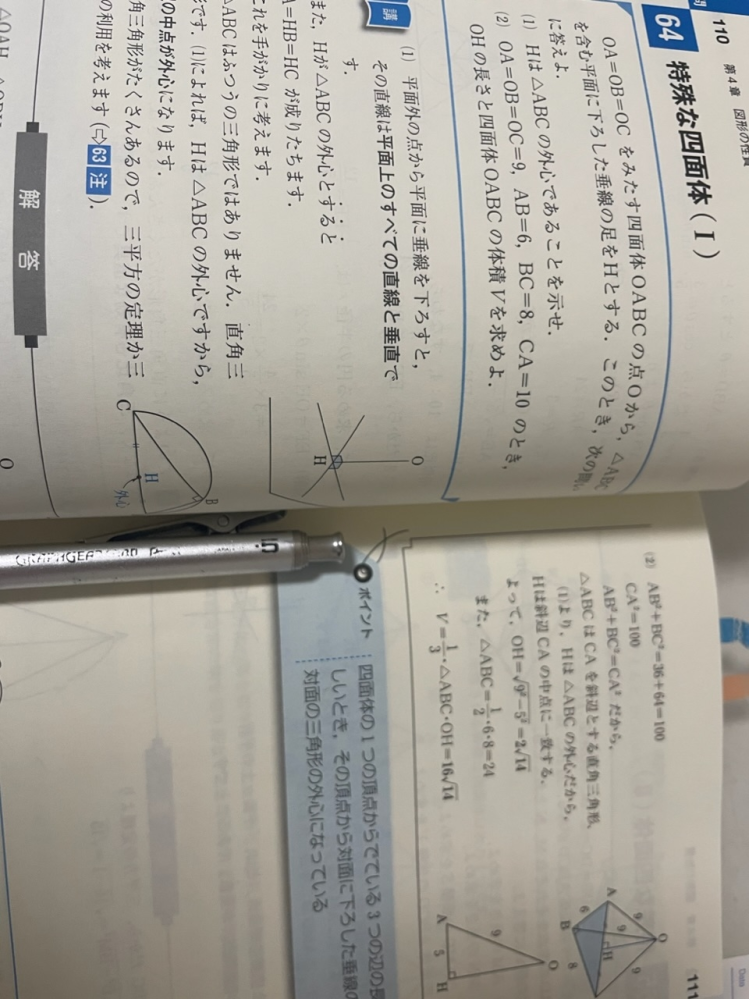 110
第4章 図形の性質
64 特殊な四面体(Ⅰ)
OA=OB=OC をみたす四面体OABCの点Oから,△ABC
を含む平面に下ろした垂線の足をHとする.このとき,次の問い
に答えよ.
(1) Hは△ABCの外心であることを示せ.
(2) OA=OB=OC=9, AB=6, BC=8, CA=10 のとき,
OHの長さと四面体OABCの体積Vを求めよ.
講
(1) 平面外の点から平面に垂線を下ろすと,
その直線は平面上のすべての直線と垂直で
す.
また,Hが△ABCの外心とすると
A=HB=HC が成りたちます.
れを手がかりに考えます.
△ABCはふつうの三角形ではありません.直角三
です.(1)によれば,Hは△ABCの外心ですから,
の中点が外心になります.
角三角形がたくさんあるので,三平方の定理か三
の利用を考えます(⇨63 注).
O
H
C
H
B
外心
解答
△OAH
O
(2) AB²+BC²=36+64=100
CA²=100
AB²+BC²=CA² だから,
△ABCはCAを斜辺とする直角三角形.
(1)より,Hは△ABCの外心だから,
Hは斜辺CAの中点に一致する.
よって,OH=√9²-5²=2√14
また,△ABC=1/2・6・8=24
∴ V=1/3・△ABC・OH=16√14
O
9
9
9
A
H
6
B
8
O
9
A
5
H
ポイント
四面体の1つの頂点からでている3つの辺の長
しいとき,その頂点から対面に下ろした垂線の
対面の三角形の外心になっている
111
GRAPHGEAR
Date